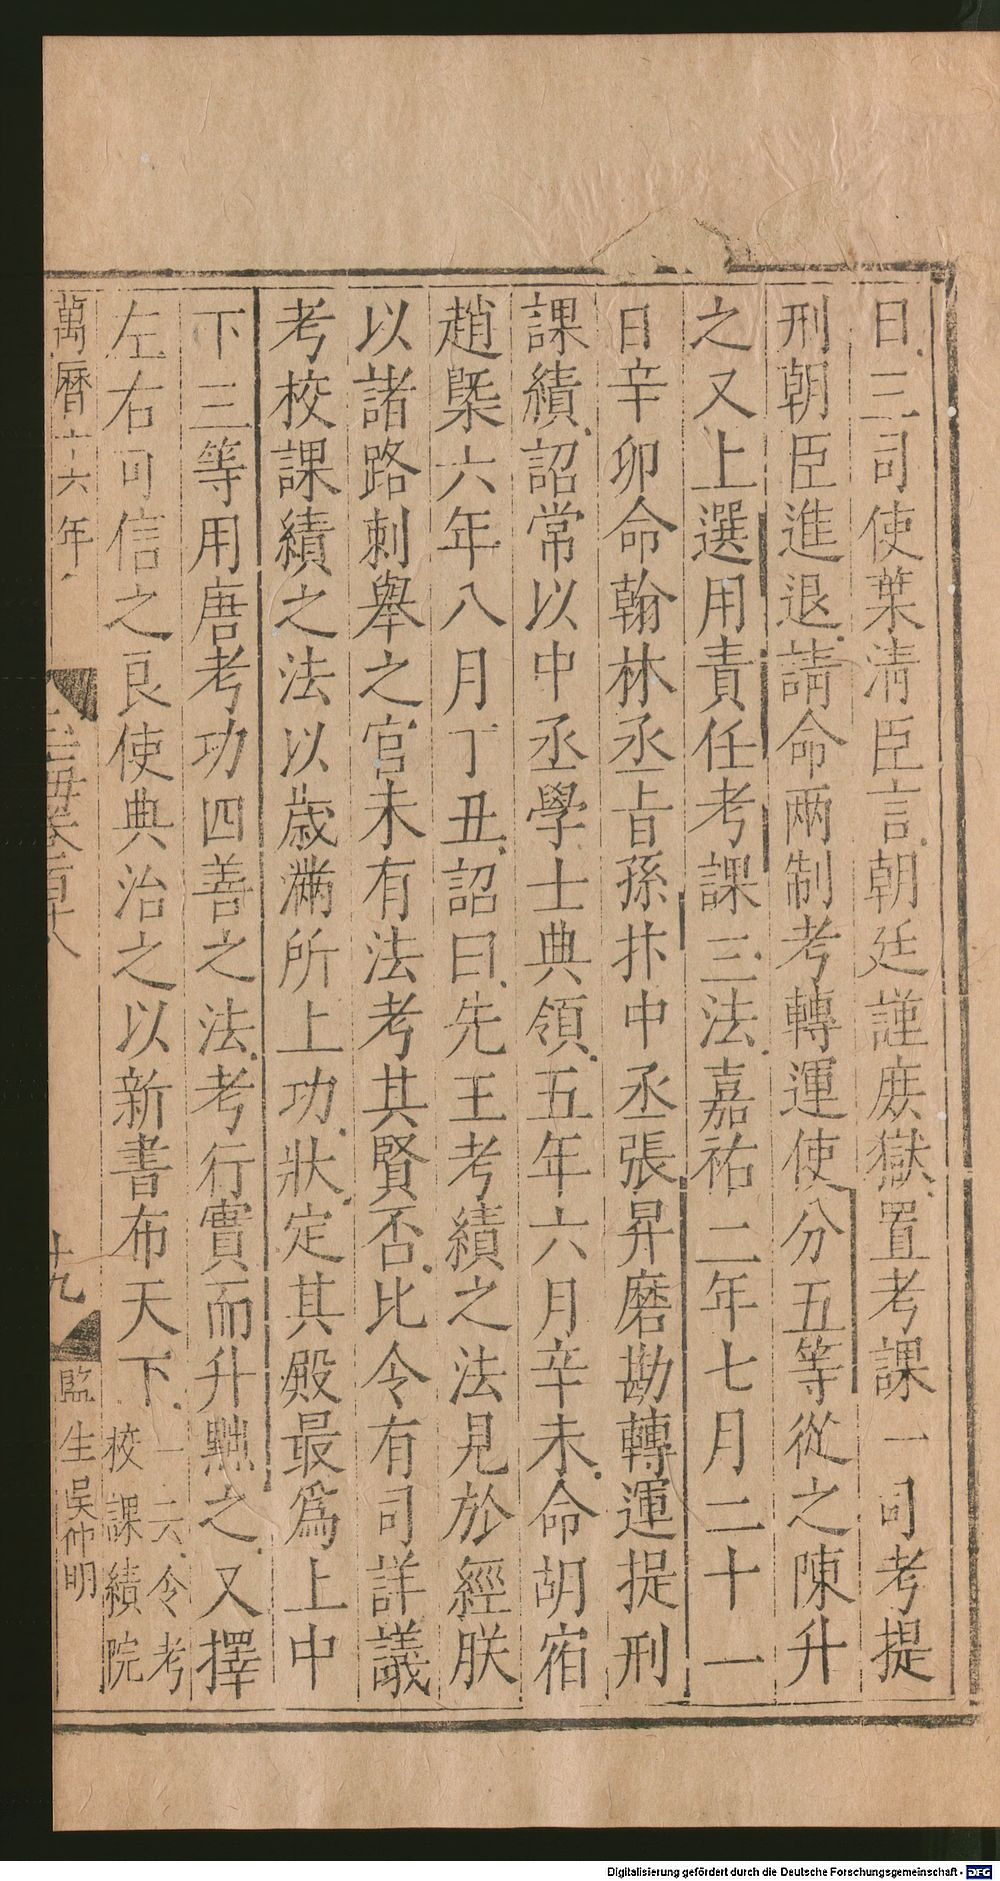 日三司使葉淸臣言朝廷謹庻獄置考課一司考提
刑朝臣進退請命兩制考轉運使分五等從之陳升
之又上選用責任考課三法嘉祐二年七月二十一
日辛卯命翰林丞㫖孫抃中丞張昇磨勘轉運提刑
課績詔常以中丞學士典領五年六月辛未命胡宿
趙槩六年八月丁丑詔曰先王考績之法見於經朕
以諸路刺舉之官未有法考其賢否比令有司詳議
考校課績之法以歳滿所上功狀定其殿最爲上中
下三等用唐考功四善之法考行實而升黜之又擇
左右可信之良使典治之以新書布天下一云令考
校課績院
萬曆十六年
玉海卷百十八
十九
監生吳仲明
Digitalisierung gefördert durch die Deutsche Forschungsgemeinschaft - DFG